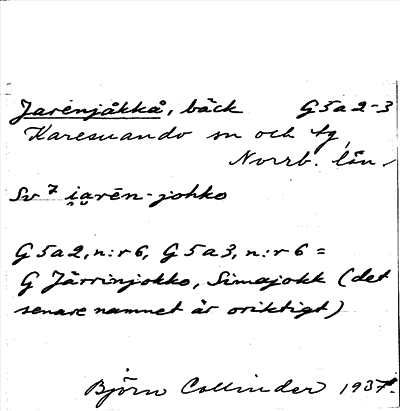 Jarenjåkkå, bäck G5a2-3
Karesuando sn och tg,
Norrb. län
Sv 7 i̯a̯rēn-johko
G5a2, n:r 6, G5a3, n:r 6 =
G Järrinjokko, Simajokk (det
senare namnet är oriktigt)
Björn Collinder 1937.